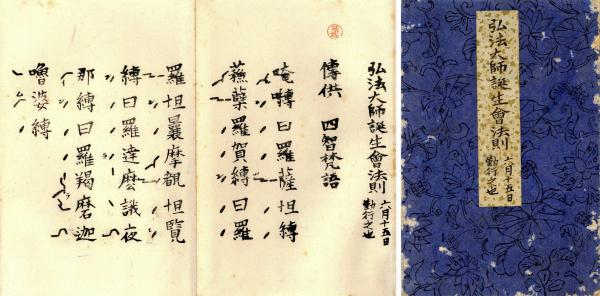 弘法大師誕生會法則
六月十五日
勤行之也
弘法大師誕生會法則
六月十五日
勤行之也
傳供 四智梵語
唵嚩日羅薩怛嚩
蘓蘖羅賀嚩日羅
羅怛曩摩覩怛覽
嚩日羅達磨誐夜
那嚩日羅羯磨迦
嚕婆嚩